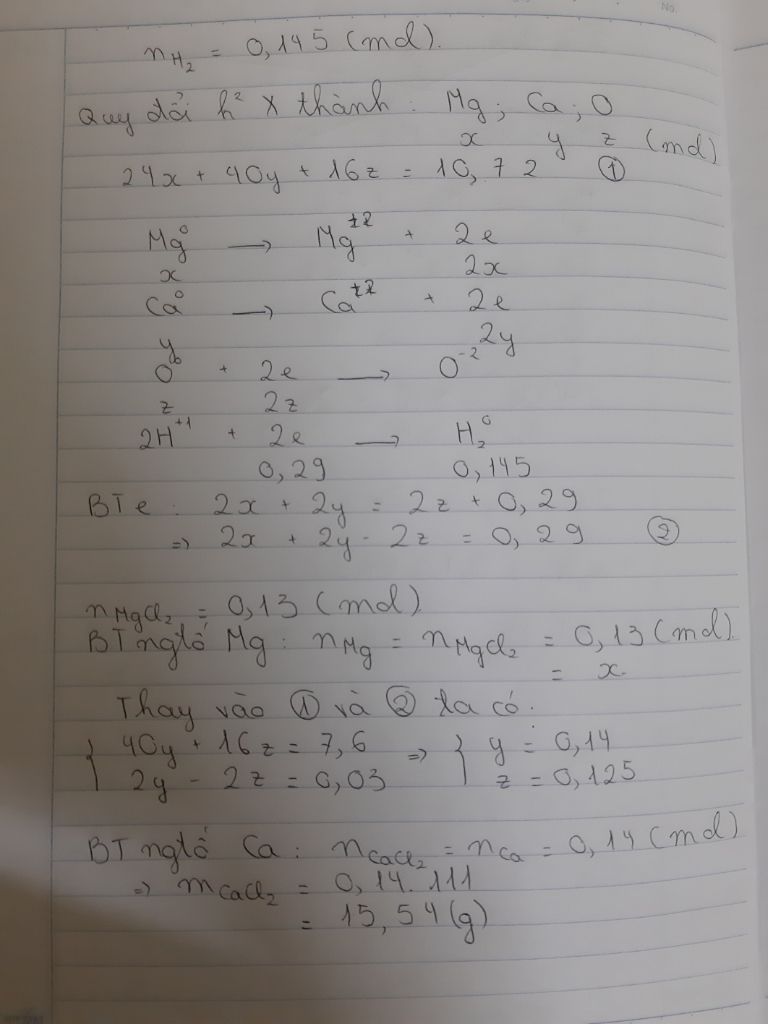 No.
n_H₂ = 0,145 (mol).
Quy đổi h² X thành : Mg ; Ca ; O
x y z (mol)
24x + 40y + 16z = 10,72 ①
Mg⁰ → Mg⁺² + 2e
x 2x
Ca⁰ → Ca⁺² + 2e
y 2y
O⁰ + 2e → O⁻²
z 2z
2H⁺¹ + 2e → H₂⁰
0,29 0,145
BTe : 2x + 2y = 2z + 0,29
=> 2x + 2y - 2z = 0,29 ②
n_MgCl₂ = 0,13 (mol)
BT ngtố Mg : n_Mg = n_MgCl₂ = 0,13 (mol)
= x.
Thay vào ① và ② ta có :
{ 40y + 16z = 7,6 => { y = 0,14
{ 2y - 2z = 0,03 { z = 0,125
BT ngtố Ca : n_CaCl₂ = n_Ca = 0,14 (mol)
=> m_CaCl₂ = 0,14.111
= 15,54 (g)